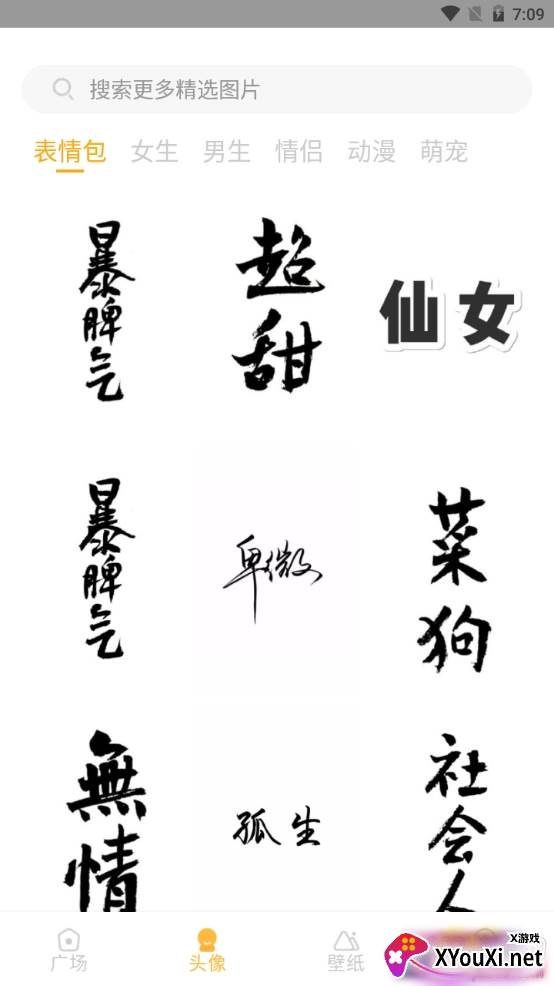 7:09
搜索更多精选图片
表情包 女生 男生 情侣 动漫 萌宠
暴脾气
超甜
仙女
暴脾气
卑微
菜狗
無情
孤生
社会人
广场 头像 壁纸
X游戏
XYouXi.net